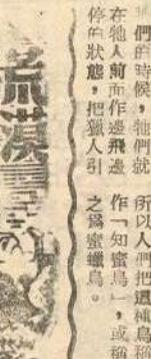 們的時候，牠們就
在牠人前面作邊飛邊
停的狀態，把獵人引
所以人們把這種鳥稱
作「知蜜鳥」，或稱
之爲蜜蠟鳥。
荒漠